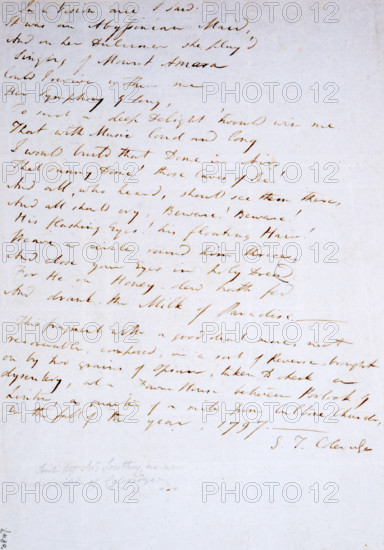 In a vision once I saw:
It was an Abyssinian Maid,
And on her Dulcimer she play'd
Singing of Mount Amara
Could I revive within me
Her Symphony & Song,
To such a deep Delight 'twould win me
That with Music loud and long
I would build that Dome in Air,
That sunny Dome! those Caves of Ice!
And all, who heard, should see them there,
And all should cry, Beware! Beware!
His flashing Eyes! his floating Hair!
Weave a circle round him thrice,
And close your Eyes in holy Dread,
For He on Honey-dew hath fed
And drank the Milk of Paradise.
This fragment with a good deal more, not
recoverable, composed, in a sort of Reverie brought
on by two grains of Opium, taken to check a
dysentery, at a Farm House between Porlock &
Linton, a quarter of a mile from Culbone Church,
in the fall of the year, 1797.
S. T. Coleridge
PHOTO 12